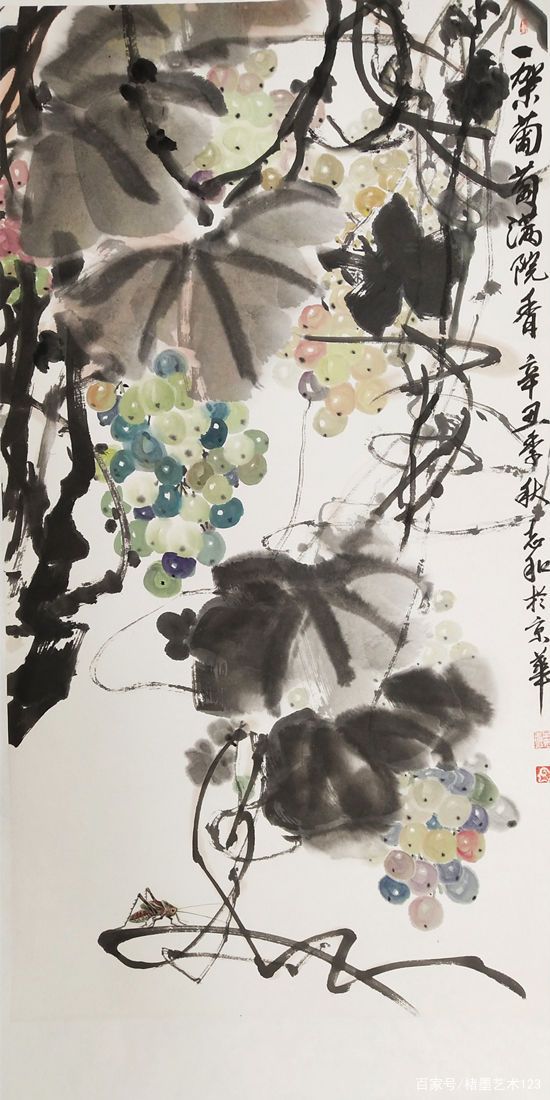 一架葡萄满院香 辛丑季秋志和於京华
百家号/楮墨艺术123